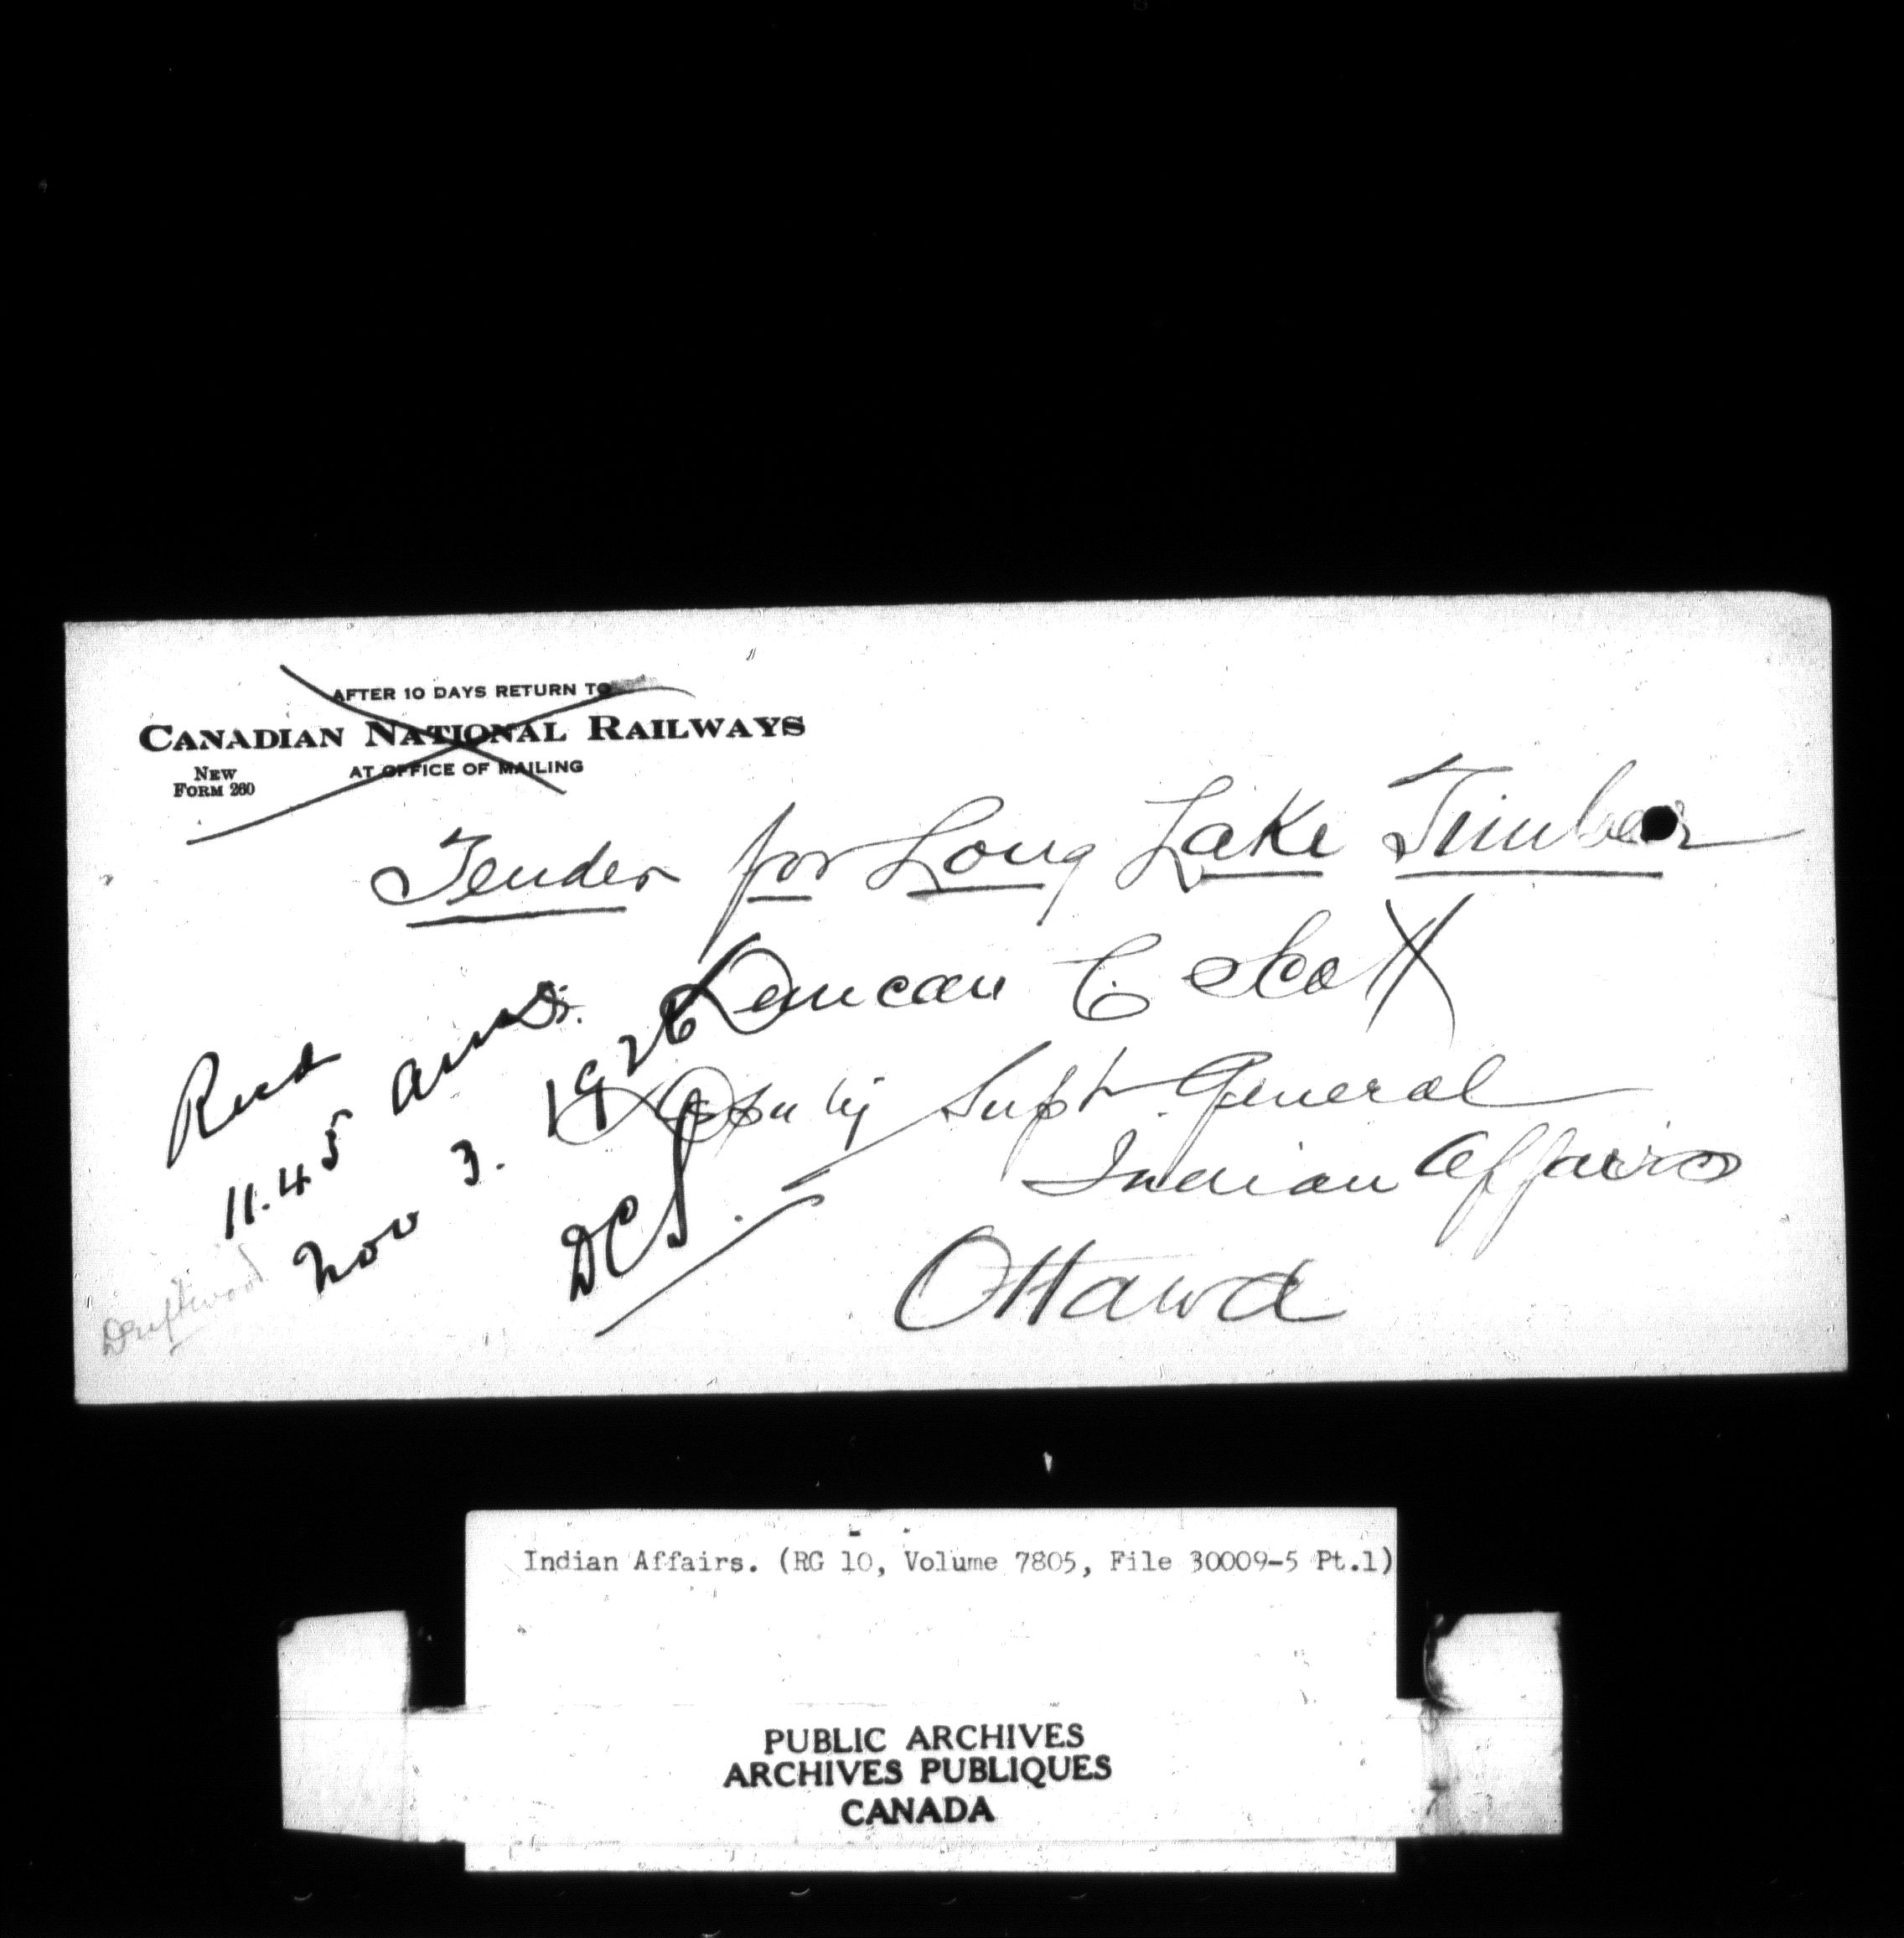 AFTER 10 DAYS RETURN TO
CANADIAN NATIONAL RAILWAYS
NEW
FORM 260
AT OFFICE OF MAILING
Tender for Long Lake Timber
Duncan C Scott
Deputy Supt General
Indian Affairs
Ottawa
Recd
11.45 am
Nov 3. 1926
DCS.
Driftwood
Indian Affairs. (RG 10, Volume 7805, File 30009-5 Pt.1)
PUBLIC ARCHIVES
ARCHIVES PUBLIQUES
CANADA